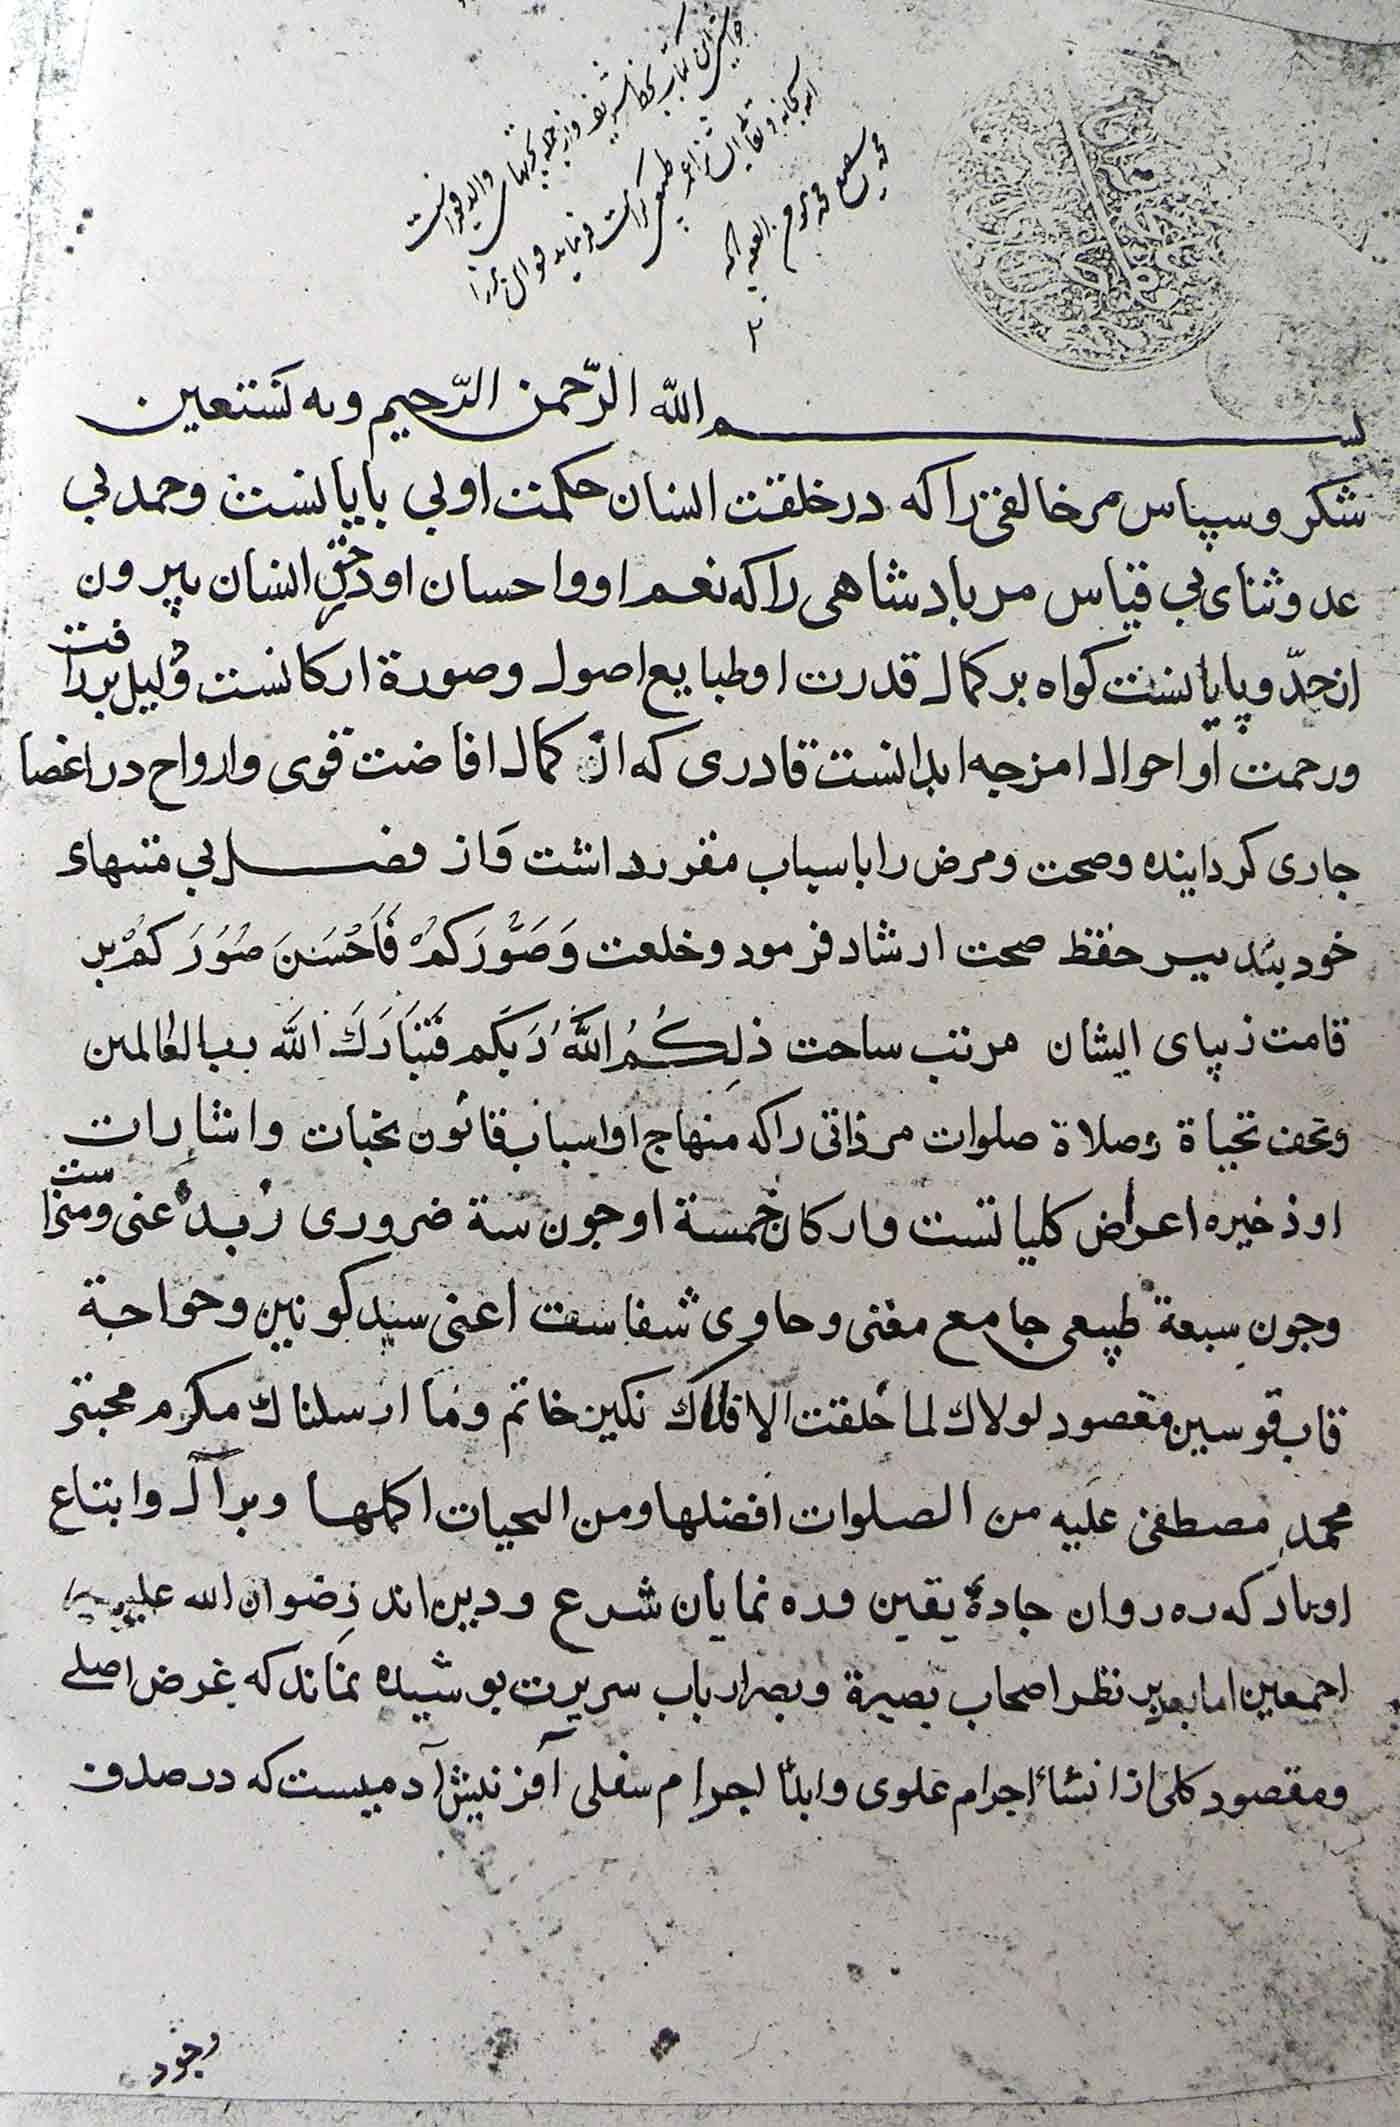 خواشی این کتاب بخط شریف
والد فقیر است
محمد
بســم الله الرّحمن الرّحیم وبه نستعین
شکر و سپاس مر خالقی را که در خلقت انسان حکمت او بی پایانست وحمد بی
عد وثنای بی قیاس مر پادشاهی را که نعم او واحسان او در حق انسان بیرون
از حدّ و پایانست کواه بر کمال قدرت او طبایع اصول وصورة ارکانست ودلیل بر رافت
ورحمت او احوال امزجه ابدانست قادری که از کمال افاضت قوی وارواح در اعضا
جاری کردانیده وصحت ومرض را باسباب مقرر داشت واز فضل بی منتهای
خود بتدبیر حفظ صحت ارشاد فرمود وخلعت وَصَوَّرَکُمْ فَاَحْسَنَ صُوَرَکُمْ بر
قامت زیبای ایشان مرتب ساخت ذلِکُمُ اللَّهُ رَبَکم فَتَبَارَكَ الله رب العالمین
وتحف تحیاة وصلاة صلوات مر ذاتی را که منهاج او اسباب قانون نجات واشارات
او ذخیره اعراض کلیاتست وارکان خمسة او جون ستة ضروری زبدهٔ غنی ومنزا ست
وجون سبعة طبیعی جامع مغنی وحاوی شفاست اعنی سید کونین وخواجة
قاب قوسین مقصود لولاك لما خلقت الافلاك نکین خاتم وما ارسلناك مکرم مجتبی
محمد مصطفی علیه من الصلوات افضلها ومن التحیات اکملها وبر آل واتباع
او باد که ره روان جادهٔ یقین وره نمایان شرع ودین اند رضوان الله علیهم
اجمعین اما بعد بر نظر اصحاب بصیرة وبصر ارباب سریرت پوشیده نماند که غرض اصلی
ومقصود کلی از انشاء اجرام علوی وابداً اجرام سفلی آفرنیش آدمیست که در صدف
وجود